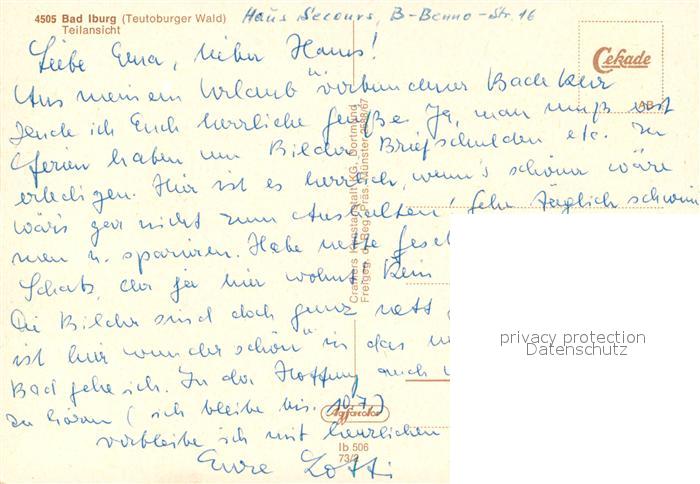 4505 Bad Iburg (Teutoburger Wald)
Teilansicht
Haus Secours, B-Benno-Str. 16
Cekade
AB
Liebe Erna, lieber Hans!
Aus meinem Urlaub verbundener Badekur
sende ich Euch herrliche Grüße. Ja, man muß erst
Ferien haben um Bilder Briefschulden etc. zu
erledigen. Hier ist es herrlich, wenn's schöner wäre
wär's gar nicht zum Aushalten! Gehe täglich schwim
men u. spazieren. Habe nette Gesel
Schatz, der ja hier wohnt. Kein
Die Bilder sind doch ganz nett
ist hier wunderschön in das
Bad gehe ich. In der Hoffnung auch
zu hören (ich bleibe bis 10.7.)
verbleibe ich mit herzlichen
Eure Lotti
Cramers Kunstanstalt KG. Dortmund
Freigeg. d. Reg. Präs. Münster 2638/67
Agfacolor
Ib 506
73/2
privacy protection
Datenschutz